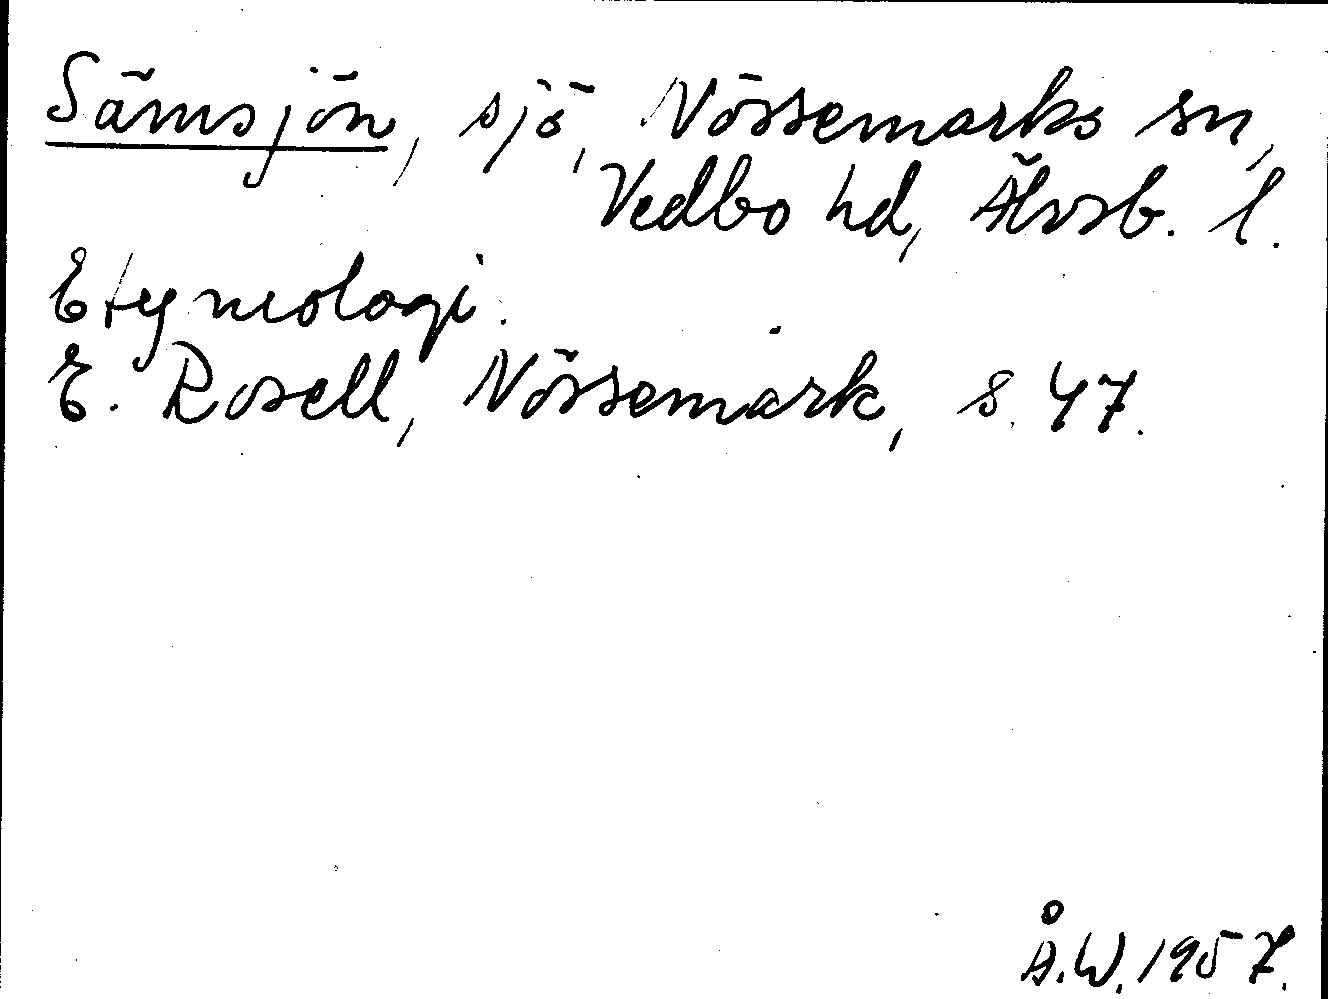 Sämsjön, sjö, Nössemarks sn,
Vedbo hd, Älvsb. l.
Etymologi.
E. Rosell, Nössemark, s. 47.
Å.W. 1957.